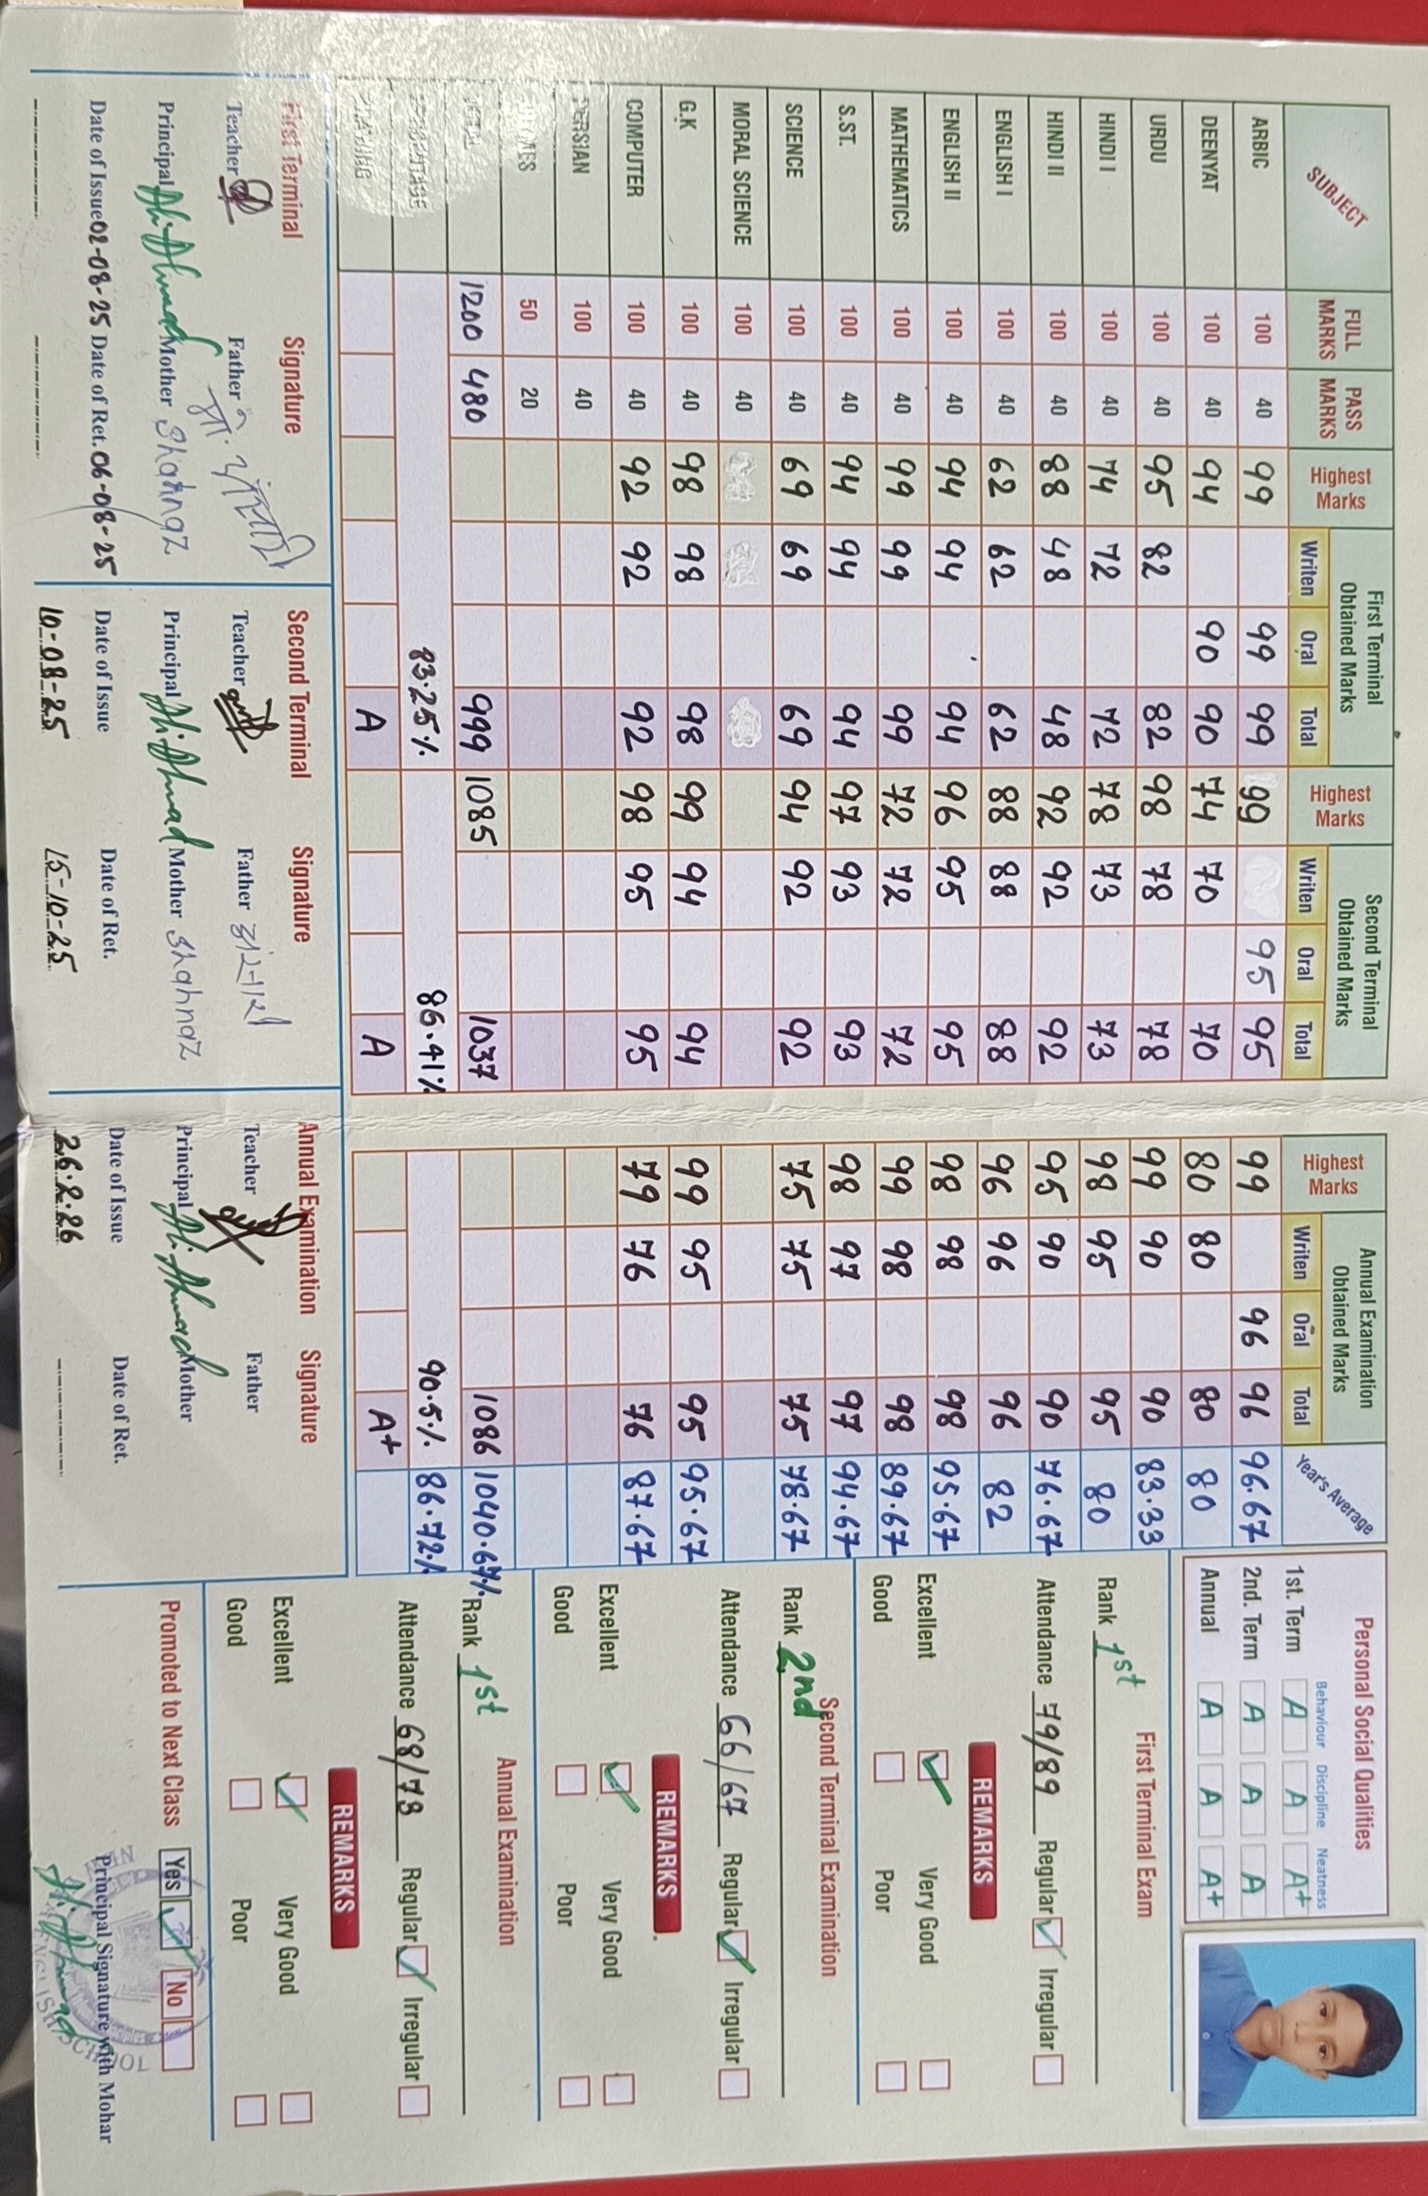 SUBJECT FULL MARKS PASS MARKS Highest Marks First Terminal Obtained Marks Writen Oral Total Highest Marks Second Terminal Obtained Marks Writen Oral Total Highest Marks Annual Examination Obtained Marks Writen Oral Total Year's Average
ARBIC 100 40 99 99 99 99 95 95 99 96 96 96.67
DEENYAT 100 40 94 90 90 74 70 70 80 80 80 80
URDU 100 40 95 82 82 98 78 78 99 90 90 83.33
HINDI I 100 40 74 72 72 78 73 73 98 95 95 80
HINDI II 100 40 88 48 48 92 92 92 95 90 90 76.67
ENGLISH I 100 40 62 62 62 88 88 88 96 96 96 82
ENGLISH II 100 40 94 94 94 96 95 95 98 98 98 95.67
MATHEMATICS 100 40 99 99 99 72 72 72 99 98 98 89.67
S.ST. 100 40 94 94 94 97 93 93 98 97 97 94.67
SCIENCE 100 40 69 69 69 94 92 92 75 75 75 78.67
MORAL SCIENCE 100 40
G.K 100 40 98 98 98 99 94 94 99 95 95 95.67
COMPUTER 100 40 92 92 92 98 95 95 79 76 76 87.67
PERSIAN 100 40
50 20
TOTAL 1200 480 999 1085 1037 1086 1040.67%
PERCENTAGE 83.25% 86.41% 90.5% 86.72%
A A A+
First Terminal Signature
Teacher Father
Principal Ali Ahmad Mother Shahnaz
Date of Issue 02-08-25 Date of Ret. 06-08-25
Second Terminal Signature
Teacher Father
Principal Ali Ahmad Mother Shahnaz
Date of Issue Date of Ret.
10-08-25 15-10-25
Annual Examination Signature
Teacher Father
Principal Ali Ahmad Mother
Date of Issue Date of Ret.
26.2.26
Personal Social Qualities
Behaviour Discipline Neatness
1st. Term A A A+
2nd. Term A A A
Annual A A A+
First Terminal Exam
Rank 1st
Attendance 79/89 Regular Irregular
REMARKS
Excellent Very Good
Good Poor
Second Terminal Examination
Rank 2nd
Attendance 66/67 Regular Irregular
REMARKS
Excellent Very Good
Good Poor
Annual Examination
Rank 1st
Attendance 68/73 Regular Irregular
REMARKS
Excellent Very Good
Good Poor
Promoted to Next Class Yes No
Principal Signature with Mohar
Ali Ahmad
ENGLISH SCHOOL